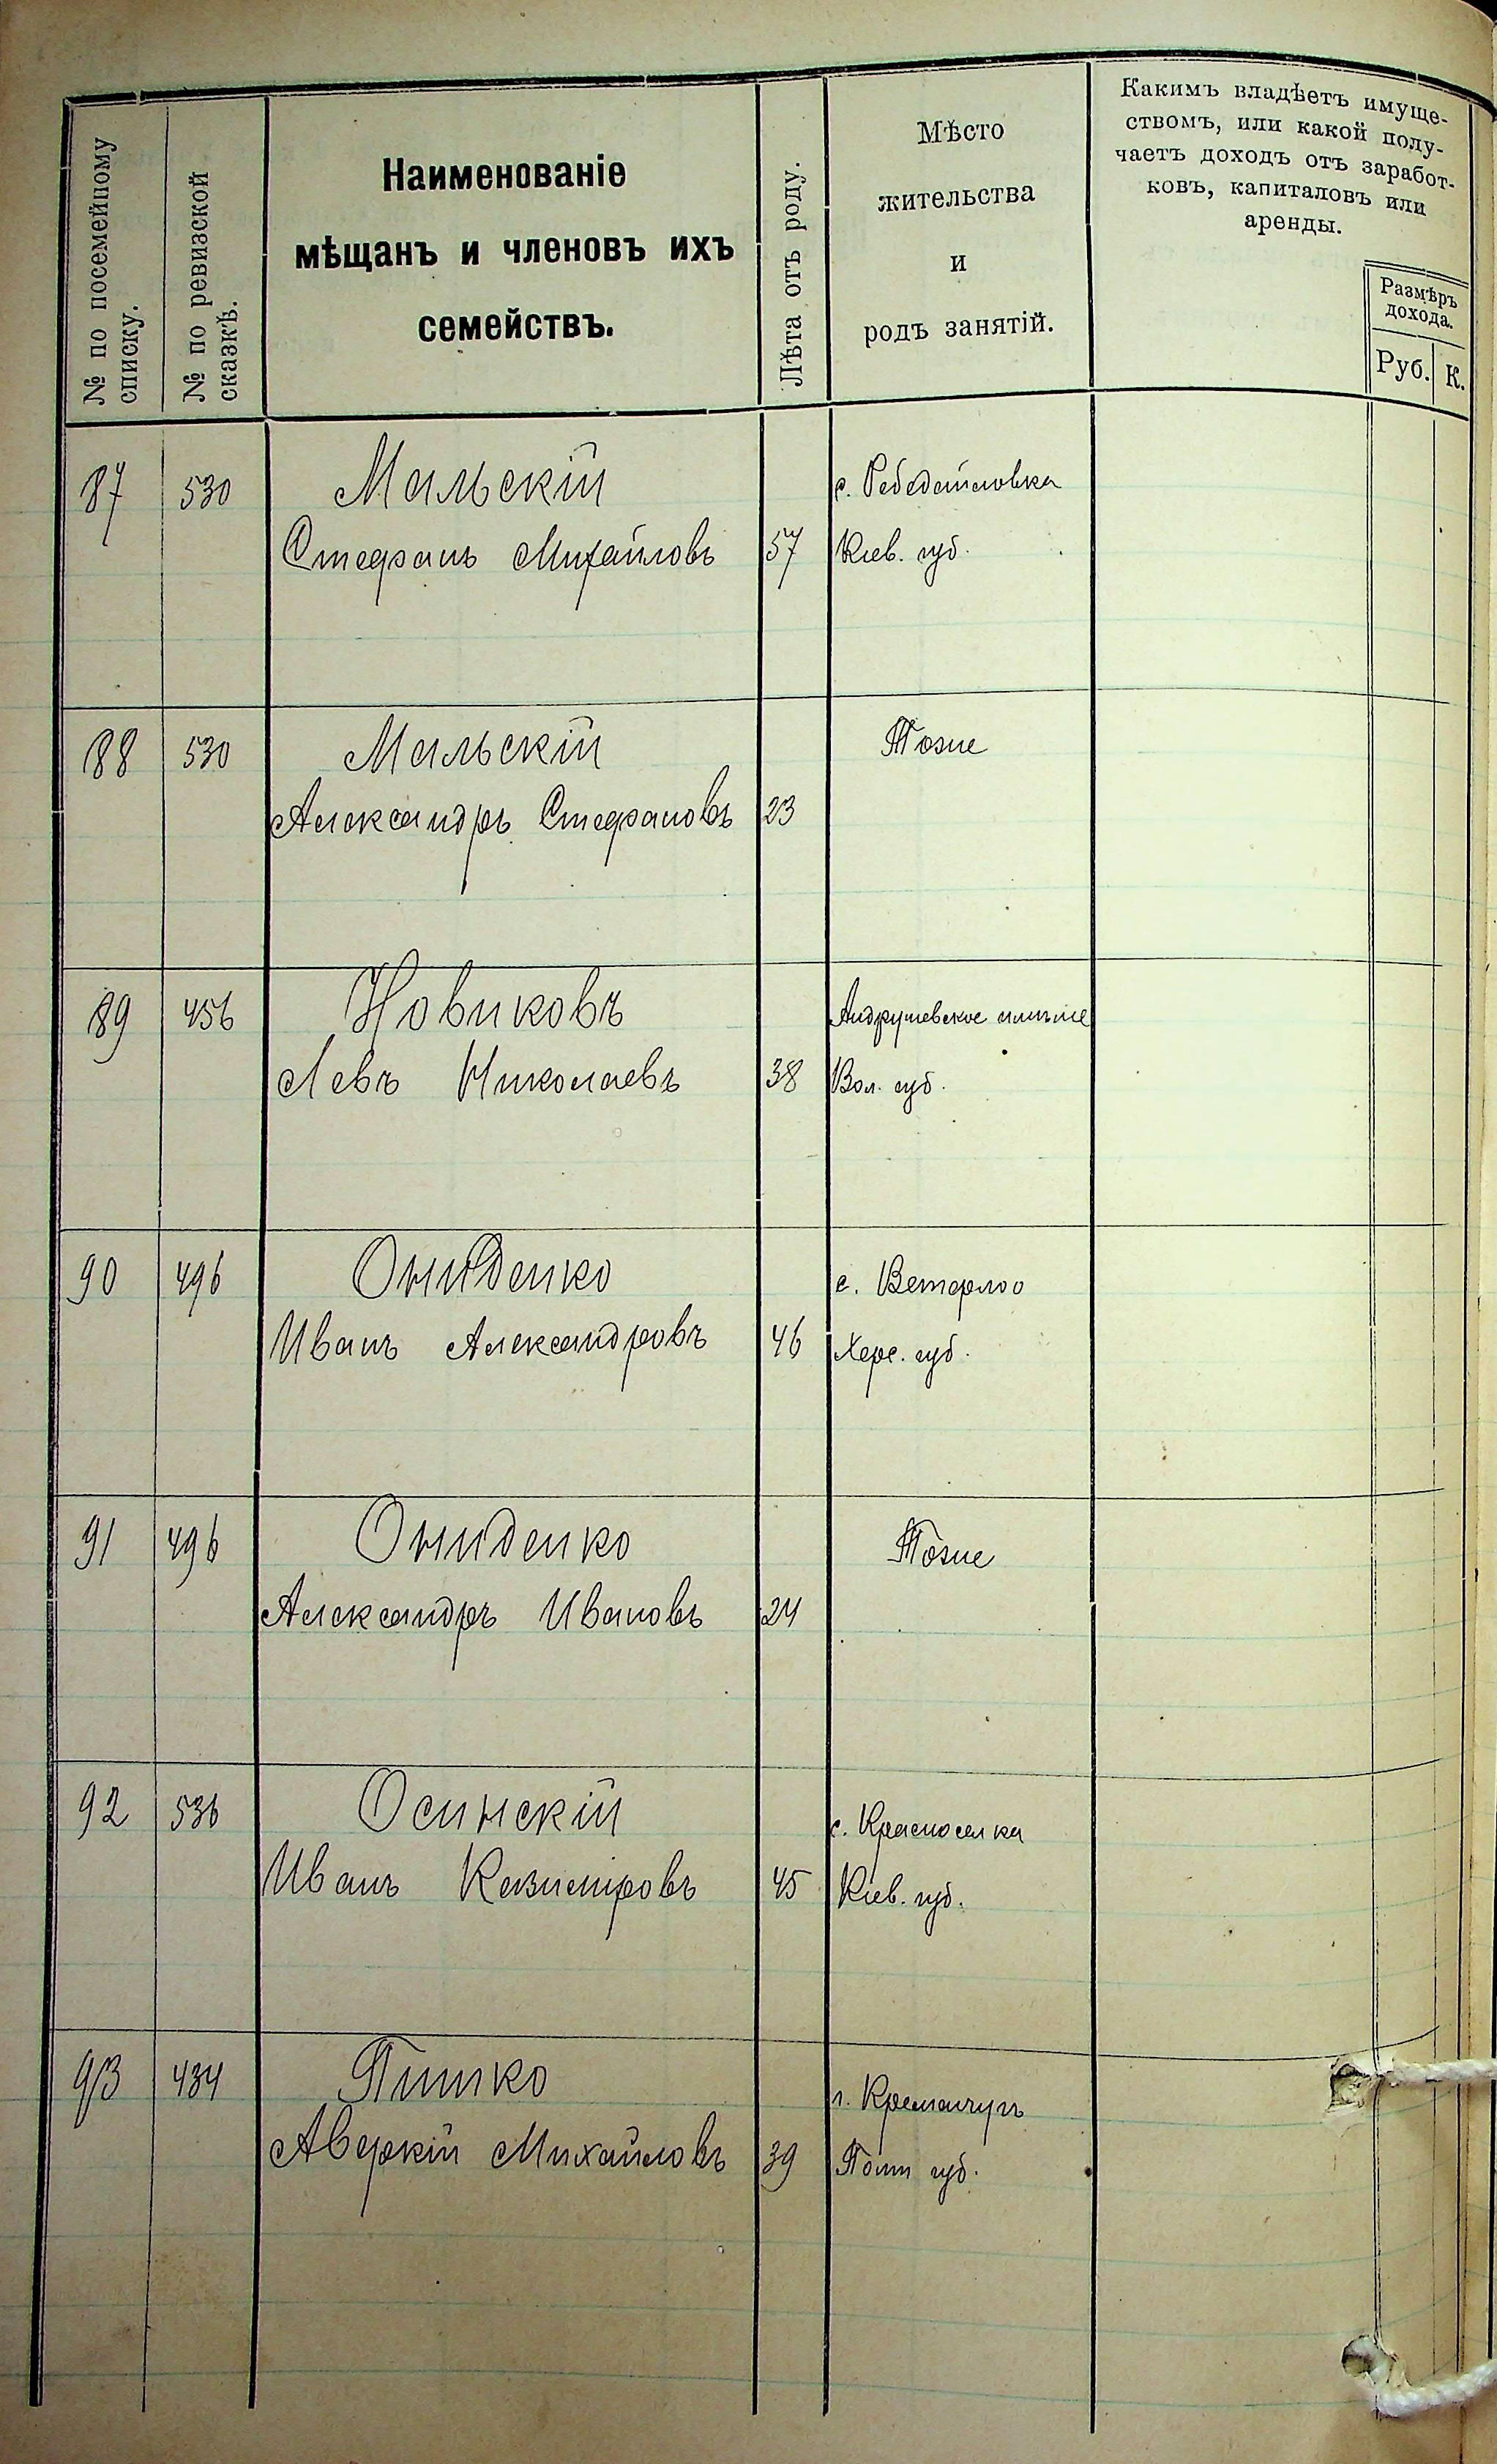 № по посемейному списку.
№ по ревизской сказкѣ.
Наименованіе
мѣщанъ и членовъ ихъ
семействъ.
Лѣта отъ роду.
Мѣсто
жительства
и
родъ занятій.
Какимъ владѣетъ имуще-
ствомъ, или какой полу-
чаетъ доходъ отъ заработ-
ковъ, капиталовъ или
аренды.
Размѣръ
дохода.
Руб. К.
87 530 Мальскій с.
Стефанъ Михайловъ 57 Кіев. губ.
88 530 Мальскій Тоже
Александръ Стефановъ 23
89 456 Новиковъ Андрушевское
Левъ Николаевъ 38 Вол. губ.
90 496 Ониденко с.
Иванъ Александровъ 46 Херс. губ.
91 496 Ониденко Тоже
Александръ Ивановъ 24
92 536 Осинскій с. Красноселка
Иванъ Казиміровъ 45 Кіев. губ.
93 434 г. Кременчугъ
Аверкій Михайловъ 39 Полт губ.